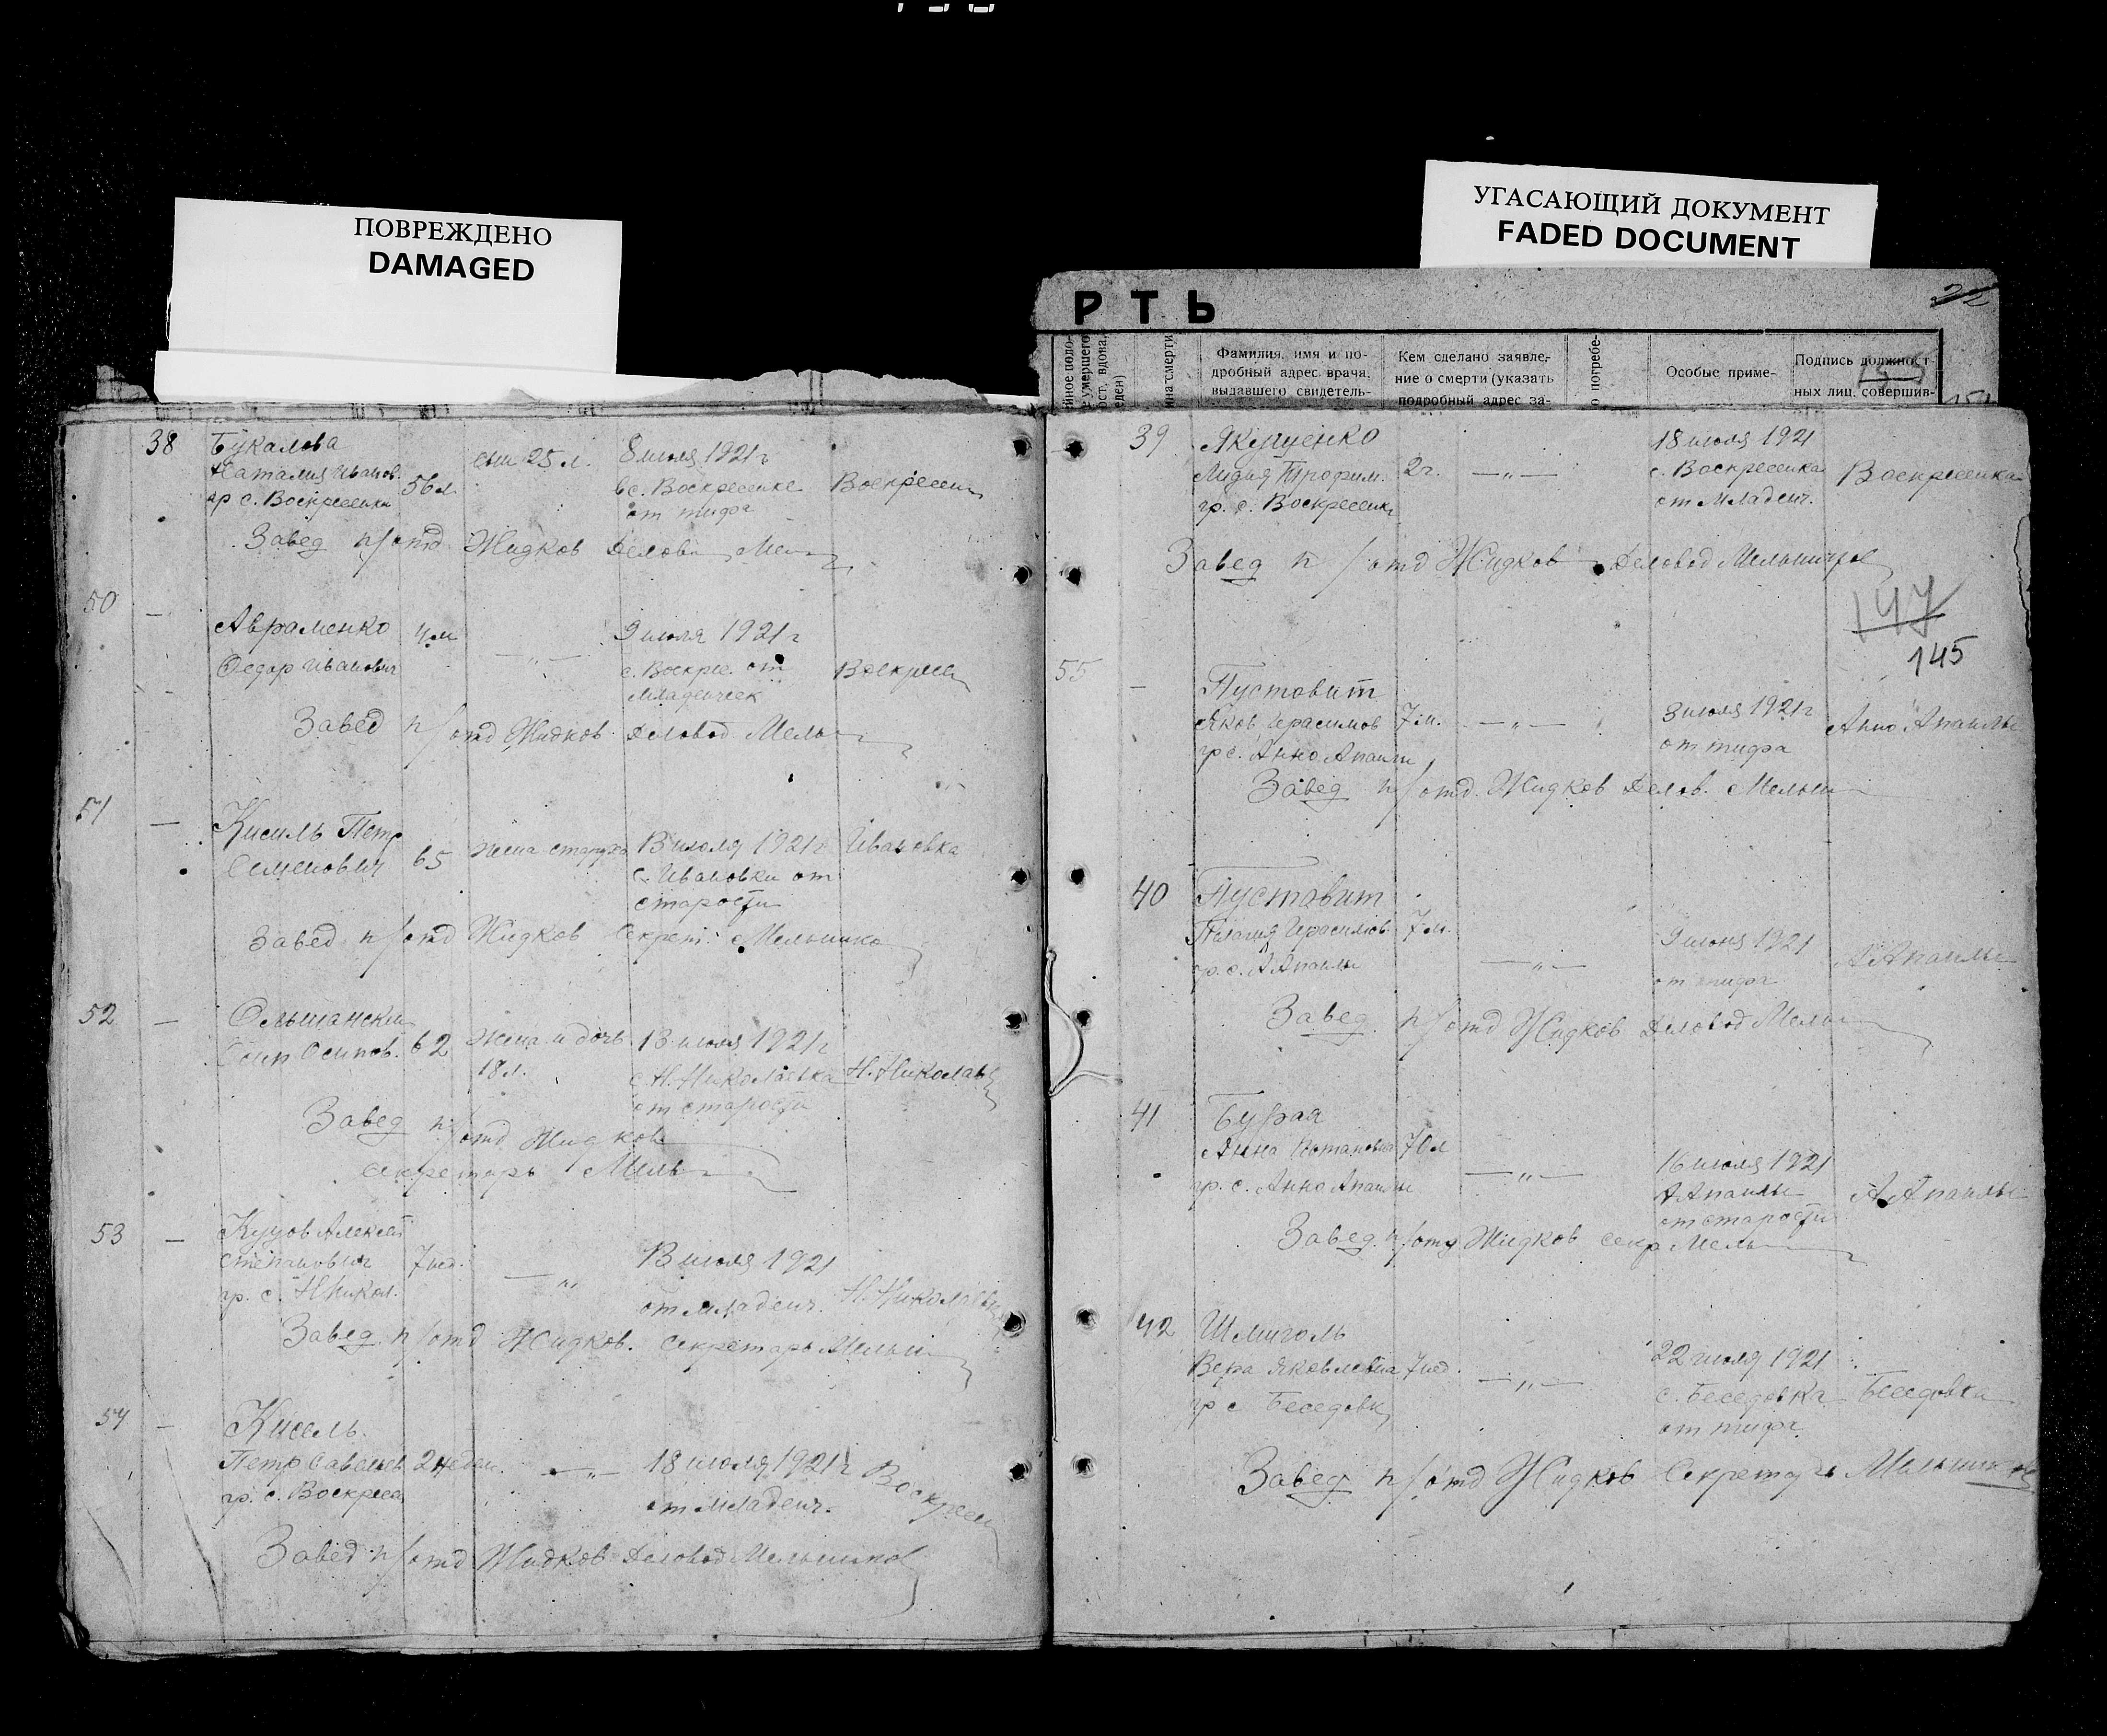 ПОВРЕЖДЕНО
DAMAGED
УГАСАЮЩИЙ ДОКУМЕНТ
FADED DOCUMENT
38 Букалова
Наталия Иванов. 56 л. сын 25 л. 8 июля 1921 г
гр с. Воскресенки в с. Воскресенке Воскресен
от тифа
Завед п/отд Жидков Делов Мел
50 — Авраменко 4 м — „ — 9 июля 1921 г
Федор Иванович с. Воскрес. от Воскресен
младенческ
Завед п/отд Жидков Деловод Мель
51 — Кисиль Петр
Семенович 65 жена старуха 13 июля 1921 г Ивановка
с. Ивановки от
старости
Завед п/отд Жидков Секрет. Мельнико
52 — Ольшански
Осип Осипов. 62 Жена и дочь 18 л. 13 июля 1921 г
с. Н. Николаевка Н. Николаев
от старости
Завед п/отд Жидков
секретарь Мель
53 — Алексей
Степанович 7 нед. — „ 13 июля 1921
гр. с. Н Никол. от младенч. Н. Николаевк
Завед п/отд Жидков. Секретарь Мельн
54 — Кисель.
Петр Савельев 2 недел. — „ — 18 июля 1921 г Воскресен
гр. с. Воскресен от младенч.
Завед п/отд Жидков Деловод Мельников
Р Т Ь
22
Фамилия, имя и по-
дробный адрес врача,
выдавшего свидетель-
Кем сделано заявле-
ние о смерти (указать
подробный адрес за-
о погребе-
Особые приме-
Подпись должност-
ных лиц, совершив-
39 Якущенко 18 июля 1921
Лидия Трофим. 2 г. — „ — с. Воскресенка Воскресенка
гр. с. Воскресенк от младенч.
Завед п/отд Жидков Деловод Мельников
147
145
55 — Пустовит
Яков Герасимов 7 м. — „ — 3 июля 1921 г Анно Апанлы
гр с. Анно Апанлы от тифа
Завед п/отд. Жидков Делов. Мельни
40 Пустовит
Пелагия Герасимов. 7 м. — „ — 9 июня 1921 А Апанлы
гр. с. А Апанлы от тифа
Завед п/отд Жидков Деловод Мель
41 Бурая
Анна 70 л — „ — 16 июля 1921
гр. с. Анно Апанлы А Апанлы А Апанлы
от старости
Завед. п/отд Жидков секр Мель
42 Шмиголь
Вера Яковлевна 7 нед. — „ — 22 июля 1921
гр с Беседовк с. Беседовка Беседовка
от тифа
Завед п/отд Жидков Секретарь Мельников